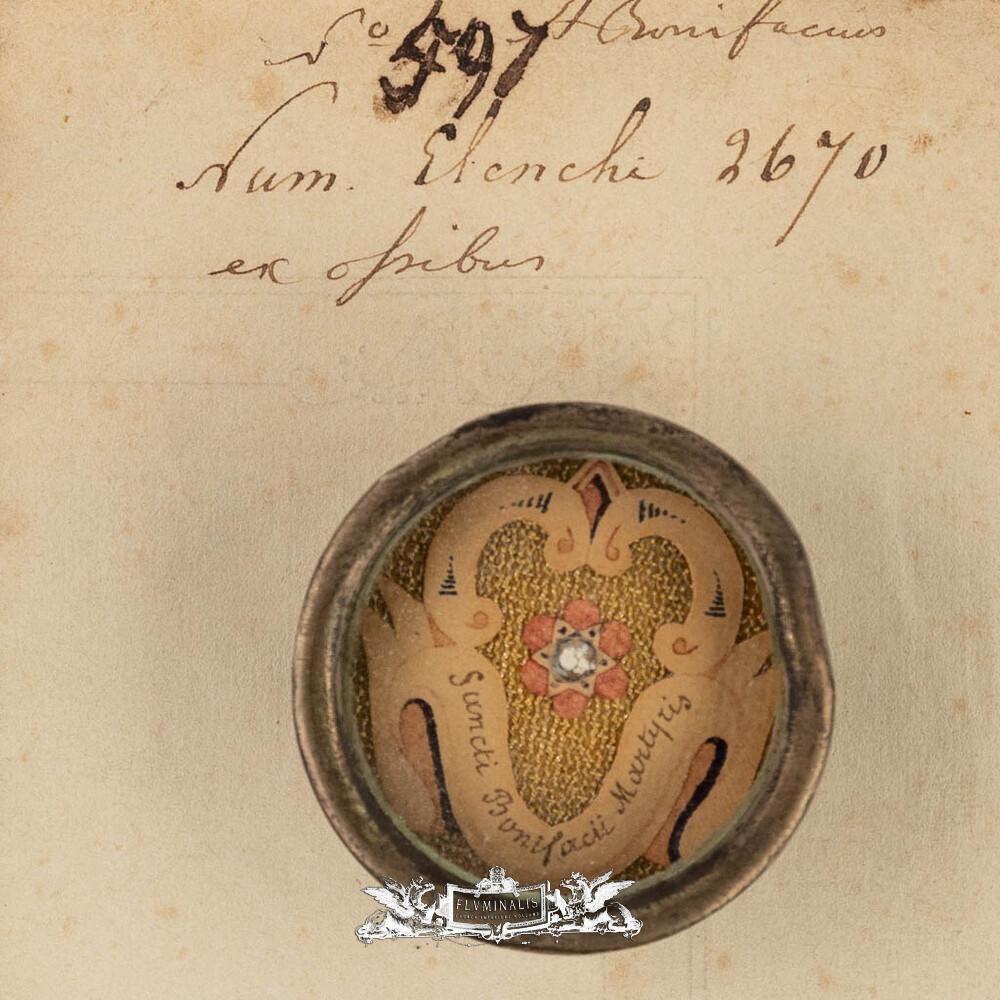 No 597 S Bonifacius
Num. Elenchi 2670
ex ossibus
Sancti Bonifacii Martyris
FLVMINALIS